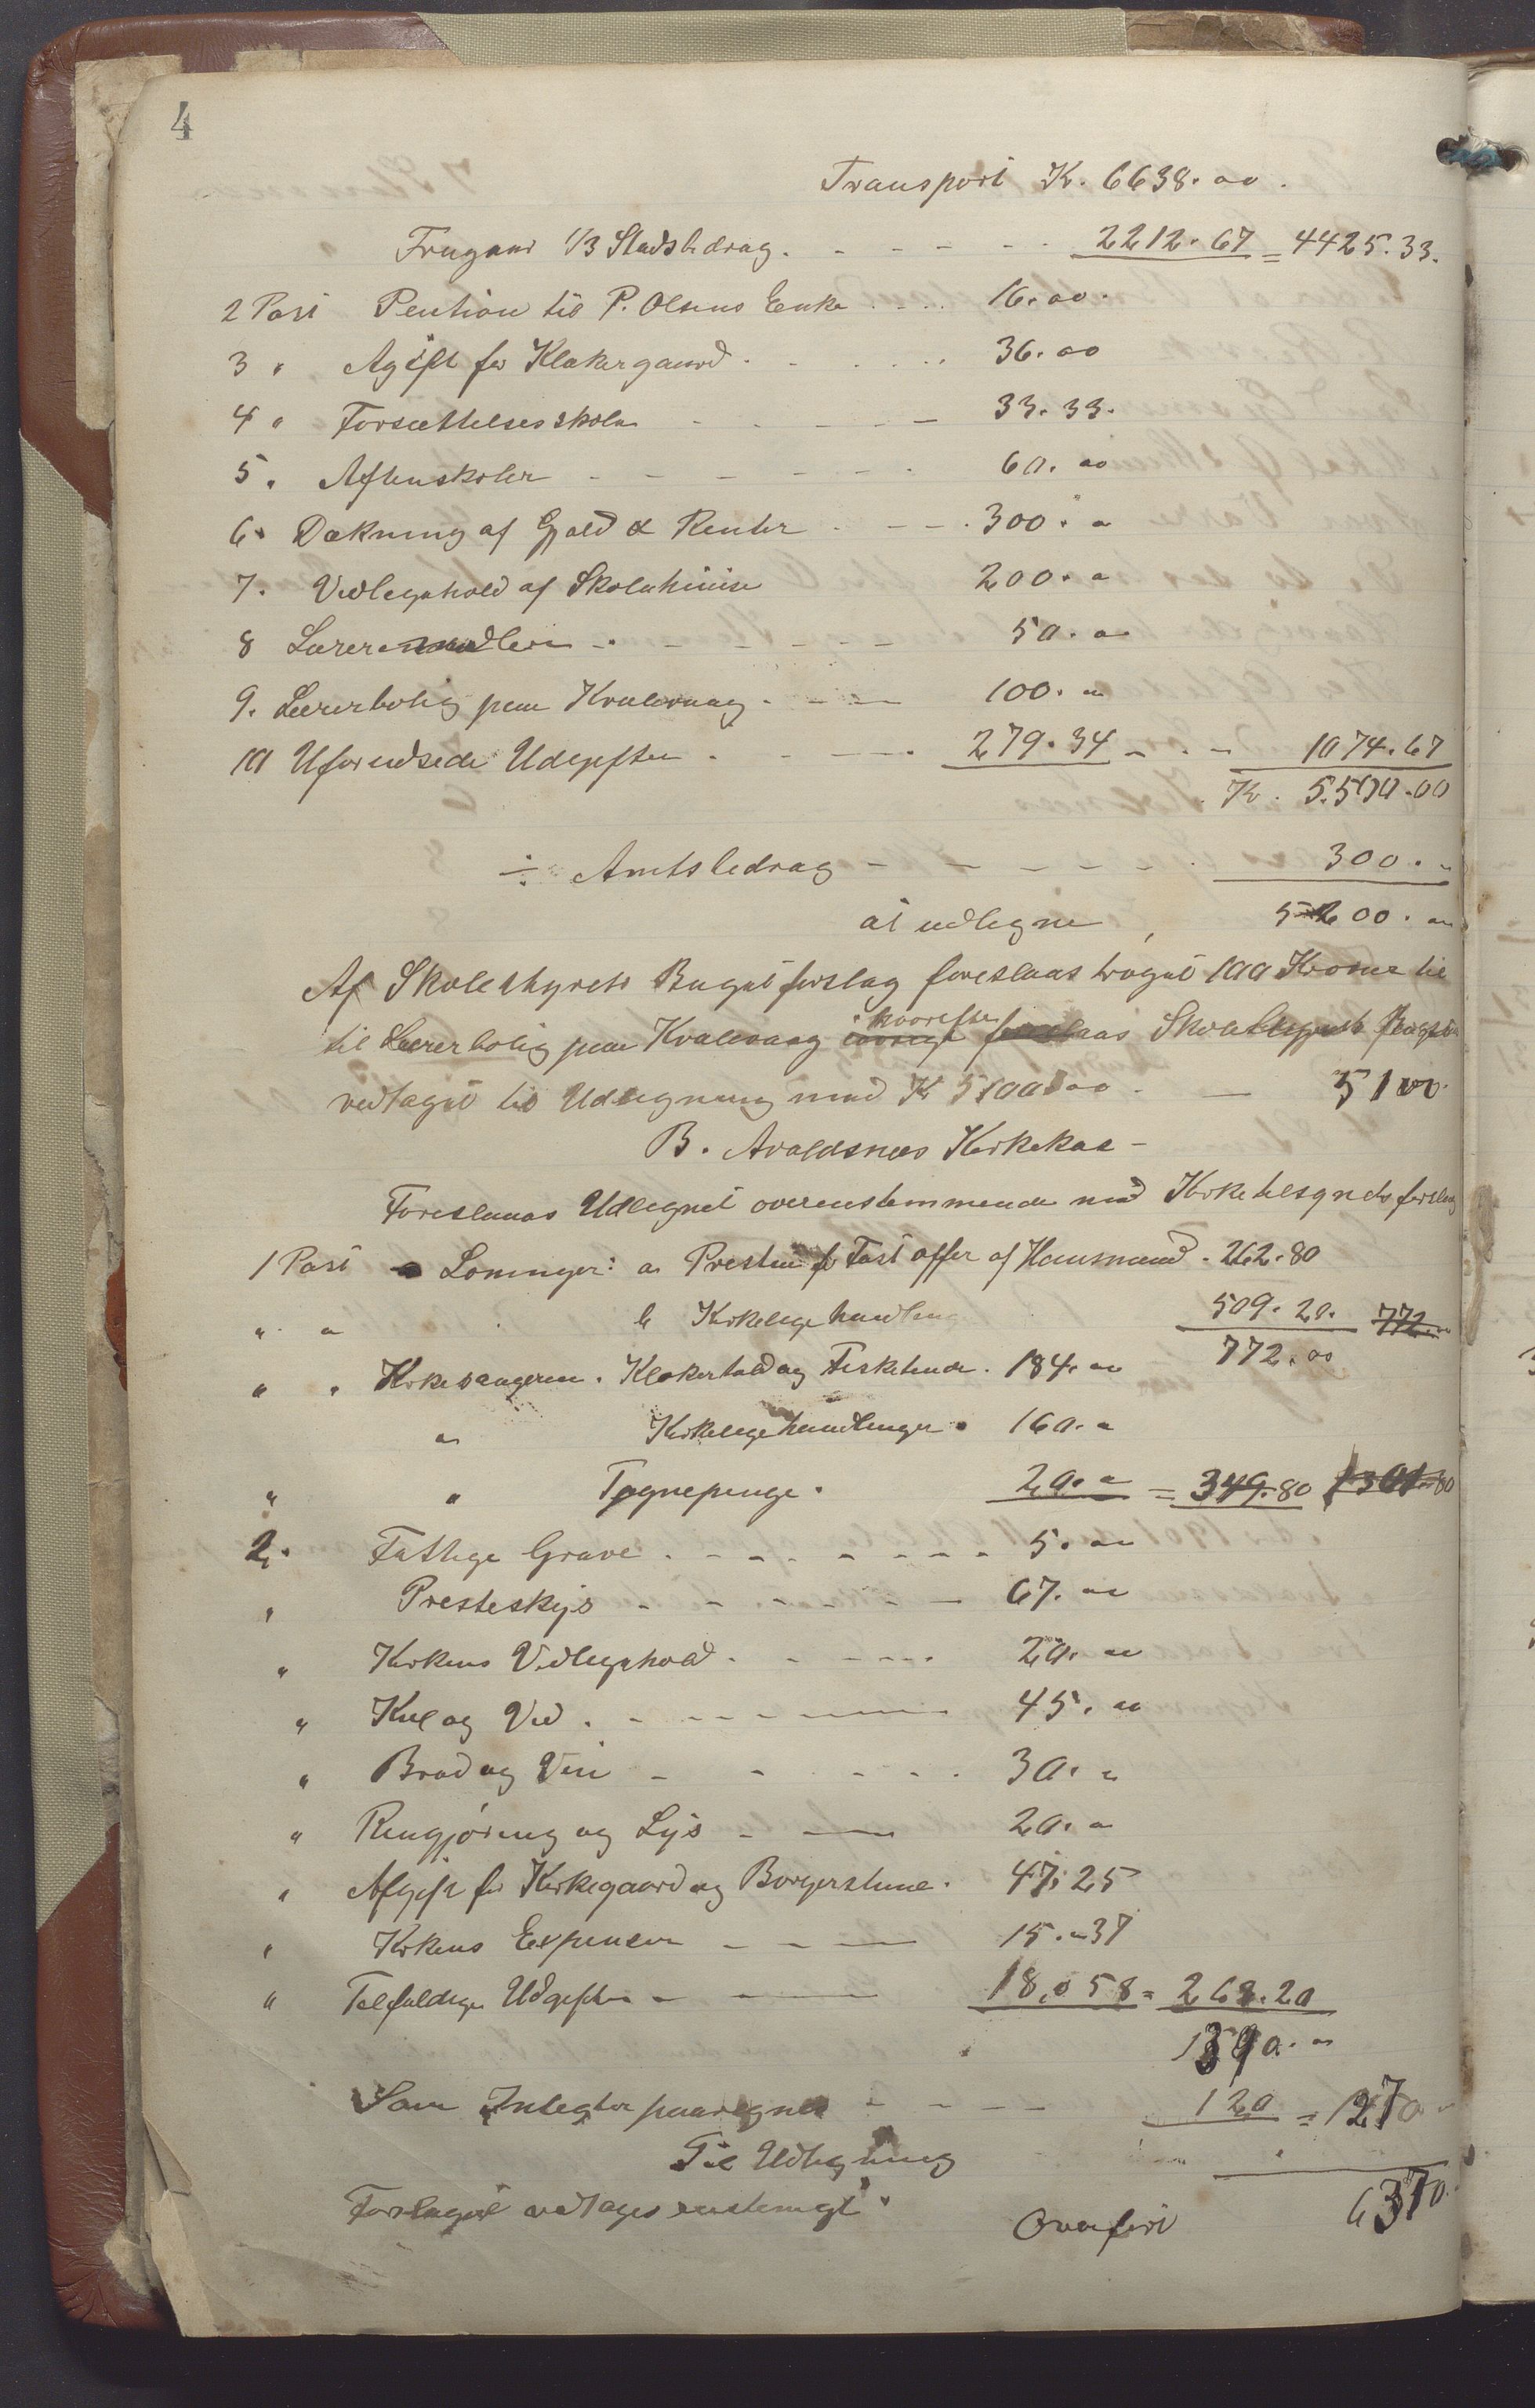 4
Transport K. 6638.00.
Fragaar 1/3 Stadsbidrag. 2212.67 = 4425.33.
2 Post Pention til P. Olsens Enke 16.00.
3 " Afgift for Klokergaard. 36.00
4 " Forsættelsesskolen 33.33.
5. Aftenskoler 60.00
6. Dækning af Gjæld & Renter 300. "
7. Vedlegehold af Skolehuse 200. "
8 Lærermidler 50. "
9. Lærerbolig paa Kvalevaag. 100. "
10 Uforudsede Udgifter. 279.34 1074.67
K. 5.500.00
÷ Amtsbidrag 300. "
at udlegne 5200. "
Af Skolestyrets Bugetforslag foreslaas traget 100 Kroner til
til Lærerbolig paa Kvalevaag hvorefter Skolestyrets
vedtaget til Udlegning med K 5100.00. 5100.
B. Avaldsnes Kirkekase
Foreslaaes Udlegnet overenstemmende med Kirketilsynets forslag
1 Post Lønninger: a Presten for Fast offer af Hausmænd. 262.80
" " b Kirkelige handling 509.20. 772.00
" " Kirkesangeren. Klokertold og Fisketiende. 184. " 772.00
" Kirkelige handlinger. 160. "
" " Tegnepenge. 20. " = 349.80 1301.80
2. Fattige Grave. 5. "
" Presteskys 67. "
" Kirkens Vedlegehold. 20. "
" Kul og Ved. 45. "
" Brød og Vin 30. "
" Rengjøring og Lys 20. "
" Afgift for Kirkegaard og Borgerstuue. 47.25
" Kirkens Expenser 15.37
" Tilfældige Udgifter 18.58 = 268.20
1390. "
Som Indtegter paaregnes 120 = 1270
Til Udlegning
Forslaget vedtages enstemigt. Overført 6370.